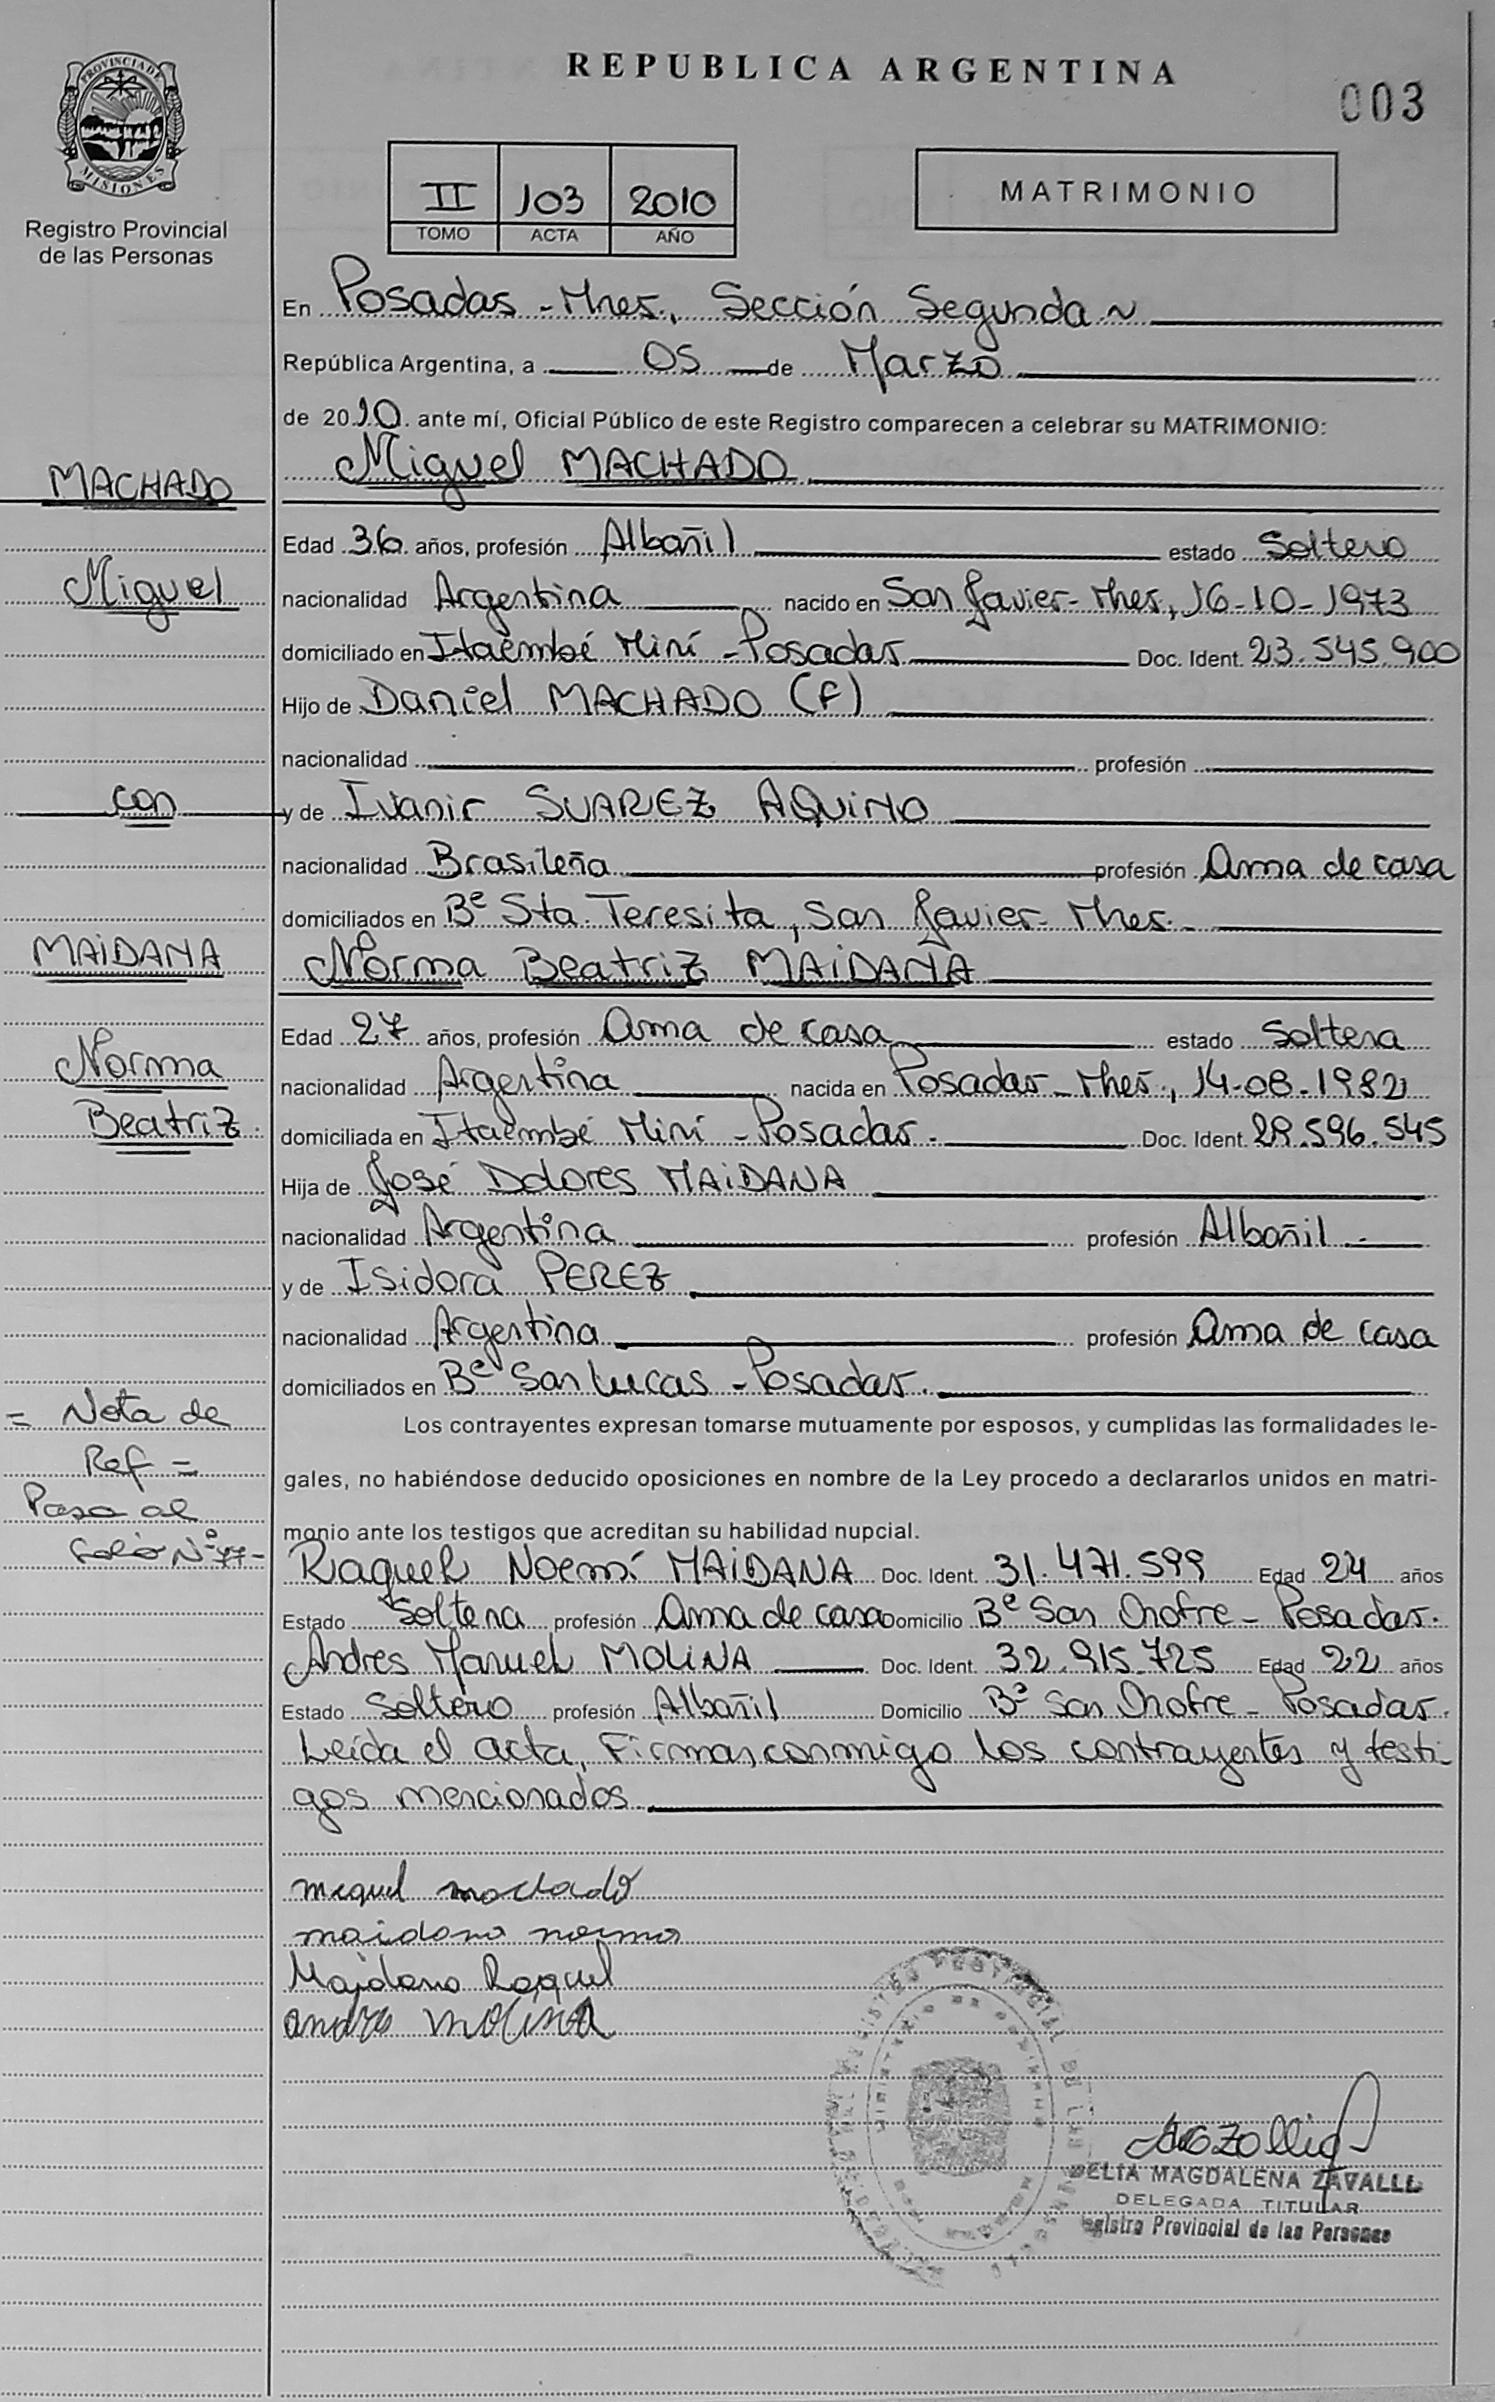 REPUBLICA ARGENTINA
003
PROVINCIA DE
MISIONES
Registro Provincial
de las Personas
II 103 2010
TOMO ACTA AÑO
MATRIMONIO
En Posadas - Mnes., Sección Segunda ~
República Argentina, a 05 de Marzo
de 2010. ante mí, Oficial Público de este Registro comparecen a celebrar su MATRIMONIO:
Miguel MACHADO
MACHADO
Edad 36 años, profesión Albañil estado Soltero
Miguel
nacionalidad Argentina nacido en San Javier - Mnes, 16-10-1973
domiciliado en Itaembé Miní - Posadas Doc. Ident. 23.545.900
Hijo de Daniel MACHADO (f)
nacionalidad profesión
con
y de Ivanir SUAREZ AQUINO
nacionalidad Brasileña profesión Ama de casa
domiciliados en Bº Sta. Teresita, San Javier - Mnes.
MAIDANA
Norma Beatriz MAIDANA
Edad 27 años, profesión Ama de casa estado Soltera
Norma
nacionalidad Argentina nacida en Posadas - Mnes., 14-08-1982
Beatriz
domiciliada en Itaembé Miní - Posadas. Doc. Ident. 29.596.545
Hija de José Dolores MAIDANA
nacionalidad Argentina profesión Albañil.-
y de Isidora PEREZ
nacionalidad Argentina profesión Ama de casa
domiciliados en Bº San Lucas - Posadas.
= Nota de
Ref =
Pasa al
Folio Nº 77-
Los contrayentes expresan tomarse mutuamente por esposos, y cumplidas las formalidades le-
gales, no habiéndose deducido oposiciones en nombre de la Ley procedo a declararlos unidos en matri-
monio ante los testigos que acreditan su habilidad nupcial.
Raquel Noemí MAIDANA Doc. Ident. 31.471.599 Edad 24 años
Estado Soltera profesión Ama de casa Domicilio Bº San Onofre - Posadas.
Andres Manuel MOLINA Doc. Ident. 32.915.725 Edad 22 años
Estado Soltero profesión Albañil Domicilio Bº San Onofre - Posadas.
Leída el acta, Firman conmigo los contrayentes y testi-
gos mencionados
miguel machado
maidana norma
Maidana Raquel
andres molina
DELIA MAGDALENA ZAVALLL
DELEGADA TITULAR
egistro Provincial de las Personas